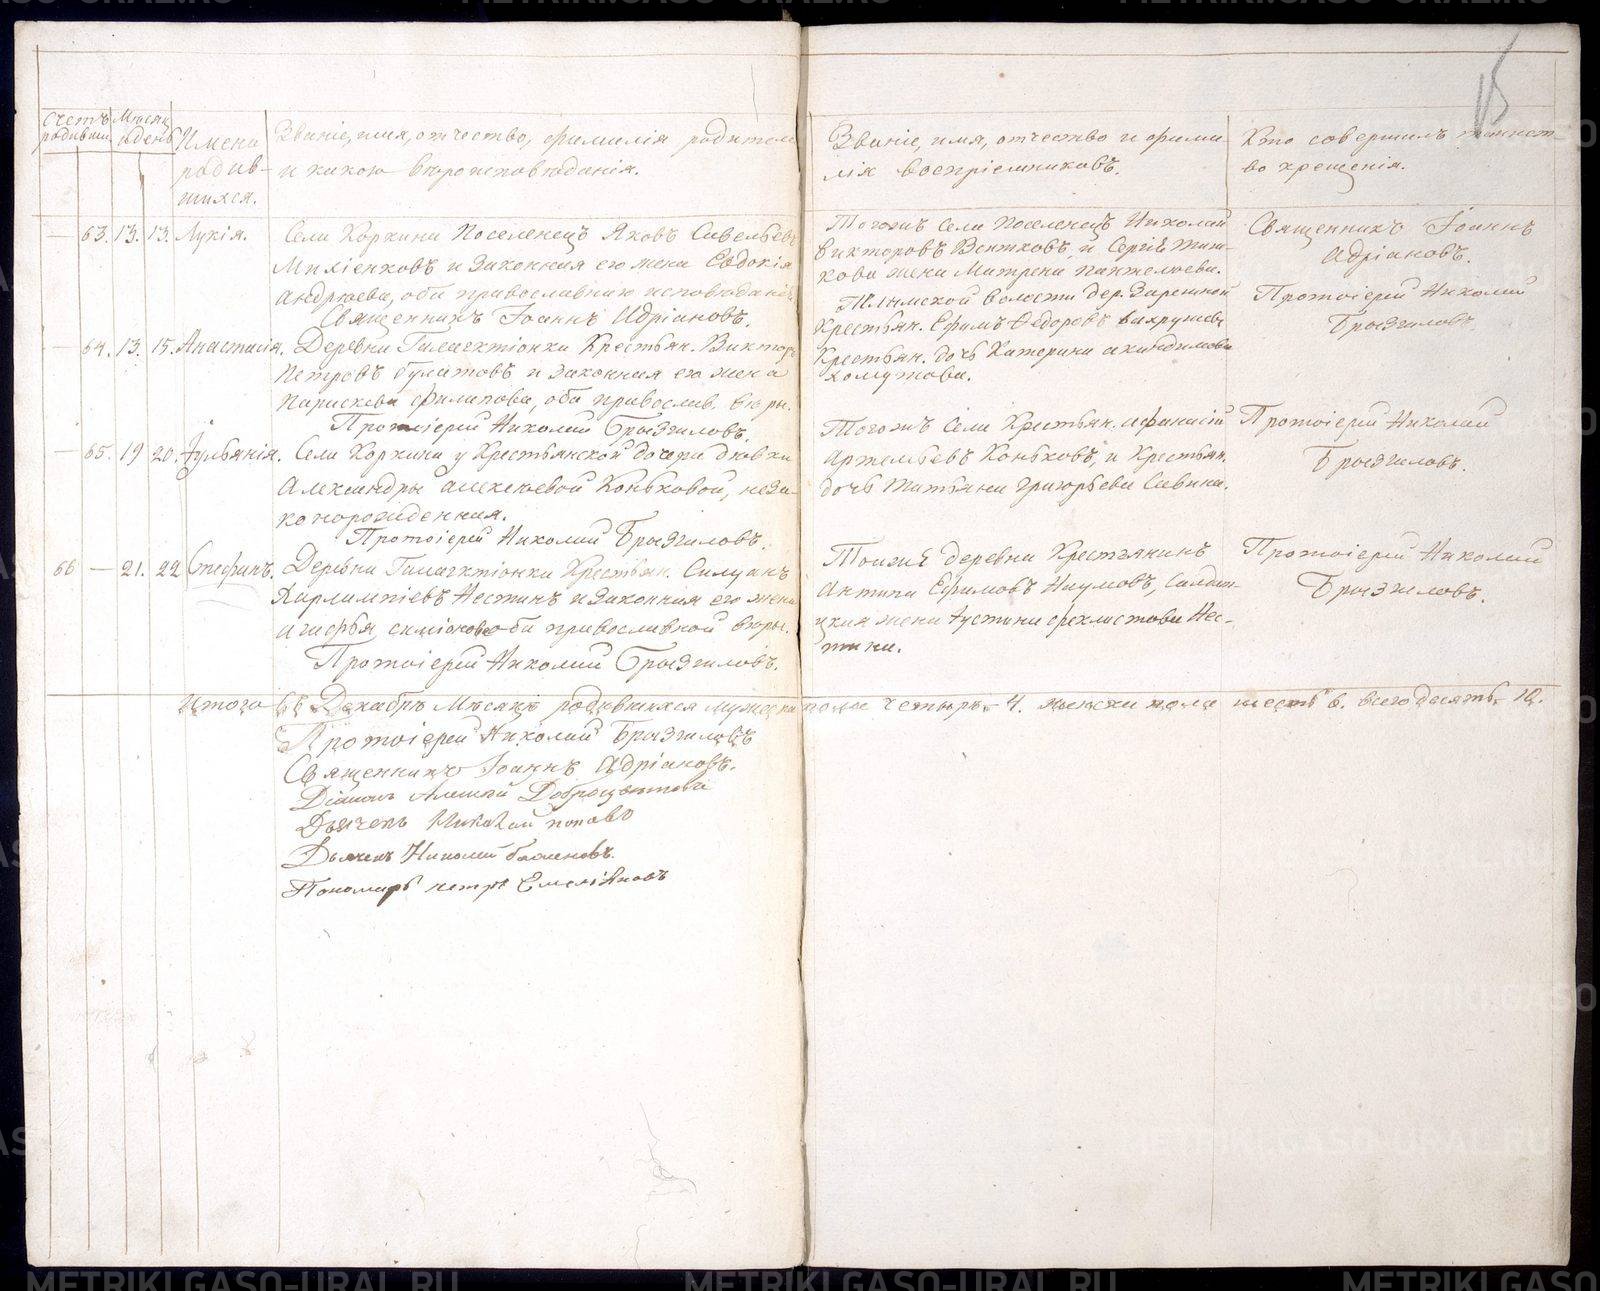 15
Счетъ
родивши
Месяц
и день
Имена
родив-
шихся.
Званіе, имя, отчество, фамилія родител
и какого вѣроисповѣданія.
Званіе, имя, отчество и фами-
лія воспріемниковъ.
Кто совершилъ таинст
во крещенія.
— 63. 13. 13. Лукія.
Села Коркина Поселенецъ Яковъ Савельевъ
и законная его жена Евдокія
Андреева, оба православнаго исповѣданія.
Священникъ Іоаннъ Адріановъ.
Тогожъ села поселенецъ Николай
Викторовъ и Сергѣя
кова жена Матрена Пантелеева.
Священникъ Іоаннъ
Адріановъ.
— 64. 13. 15. Анастасія.
Деревни Галактіонки Крестьян. Викторъ
Петровъ Булатовъ и законная его жена
Параскева Филипова, оба православ. вѣры.
Протоіерей Николай Брызгаловъ.
волости дер.
Крестьян. Ефимъ Ѳедоровъ Вахрушевъ
Крестьян. дочь Катерина Акиндинова
Хомутова.
Протоіерей Николай
Брызгаловъ.
— 65. 19 20. Іульянія.
Села Коркина у Крестьянской дочери дѣвки
Александры Алексѣевой Коньковой, неза-
конорожденная.
Протоіерей Николай Брызгаловъ.
Тогожъ села Крестьян. Афанасій
Артемьевъ Коньковъ, и Крестьян.
дочь Татьяна Григорьева Савина.
Протоіерей Николай
Брызгаловъ.
66 — 21. 22 Стефанъ.
Деревни Галактіонки Крестьян. Силуанъ
Харлампіевъ Нестинъ и законная его жена
Агафья Симіонова оба православной вѣры.
Протоіерей Николай Брызгаловъ.
Тоижъ деревни Крестьянинъ
Антипа Ефимовъ Наумовъ, Салдат-
ская жена Іустина Нес-
тина.
Протоіерей Николай
Брызгаловъ.
Итого въ Декабрѣ Мѣсяцѣ родившихся мужеска пола четыре 4. женска пола шесть 6. всего десять 10.
Протоіерей Николай Брызгаловъ
Священникъ Іоаннъ Адріановъ.
Діаконъ Алексѣй Доброцвѣтовъ
Дьячекъ Николай Поповъ
Дьячекъ Николай
Пономарь Петръ Емельяновъ
METRIKI.GASO-URAL.RU